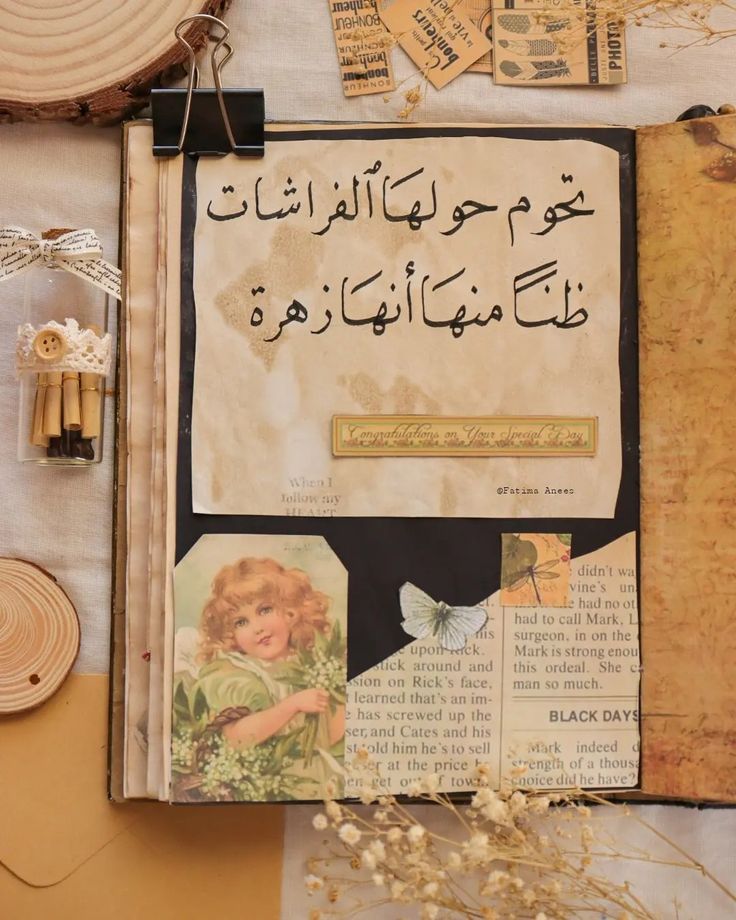 BONHEUR
bonheur
BONHEUR
bonheur
C'est
bonheur
la vie
PHOTO
تحوم حولهَا ٱلفراشات
ظنَّاً منهَا أنهَا زهرة
Congratulations on Your Special Day
©Fatima Anees
When I
follow my
HEART
his
e upon Rick.
stick around and
sion on Rick's face,
learned that's an im-
e has screwed up the
ser, and Cates and his
st told him he's to sell
er at the price he
en get out of town.
didn't wa
vine's un
e had no ot
had to call Mark, L
surgeon, in on the
Mark is strong enou
this ordeal. She c
man so much.
BLACK DAYS
Mark indeed d
strength of a thousa
choice did he have?